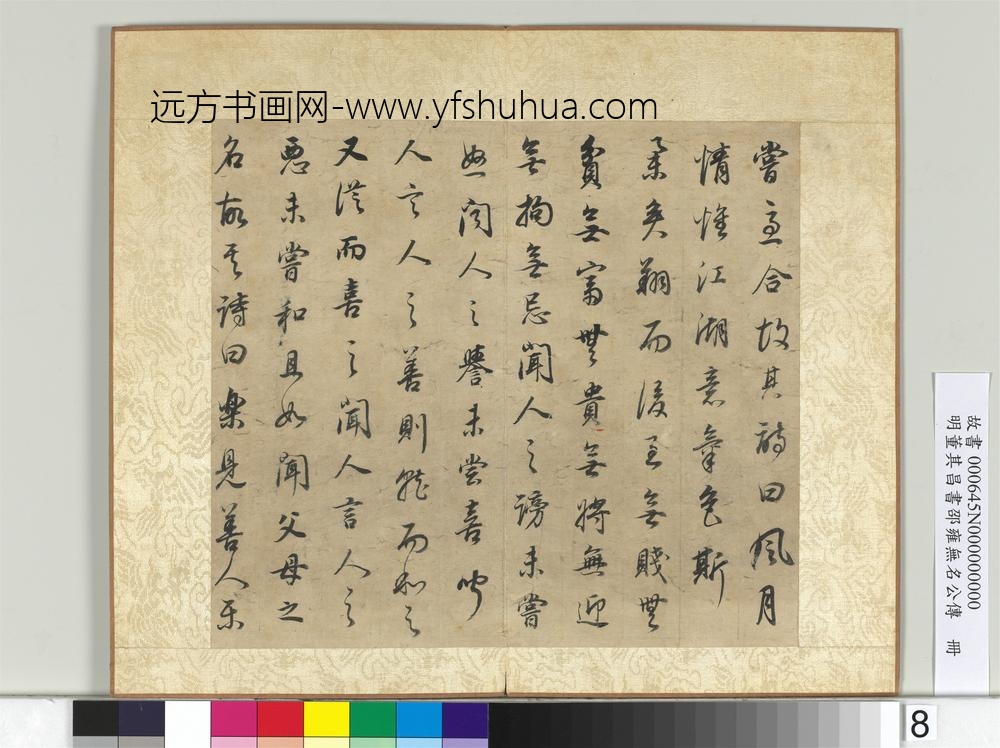 远方书画网-www.yfshuhua.com
嘗合故其詩曰風月
情懷江湖意氣色斯
舉矣翔而後至無賤無
貧無富無貴無將無迎
無拘無忌聞人之謗未嘗
怒聞人之譽未嘗喜聞
人言人之善則就而和之
又從而喜之聞人言人之
惡未嘗和且如聞父母之
名故其詩曰樂見善人樂
故書 000645N000000000
明董其昌書邵雍無名公傳 冊
8